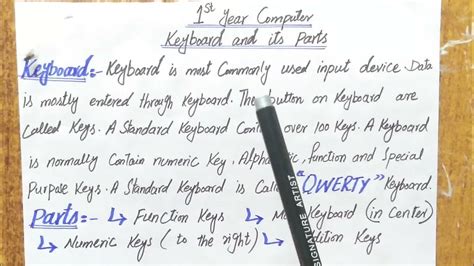 1st Year Computer
Keyboard and its Parts
Keyboard:- Keyboard is most Commonly used input device. Data
is mostly entered through Keyboard. The button on Keyboard are
Called Keys. A Standard Keyboard over 100 Keys. A Keyboard
is normally Contain numeric Key, function and Special
Purpose Keys. A Standard Keyboard is "QWERTY" Keyboard.
Parts:- ↳ Function Keys ↳ Keyboard (in Center)
↳ Numeric Keys (to the right) ↳ Keys
SIGNATURE ARTIST